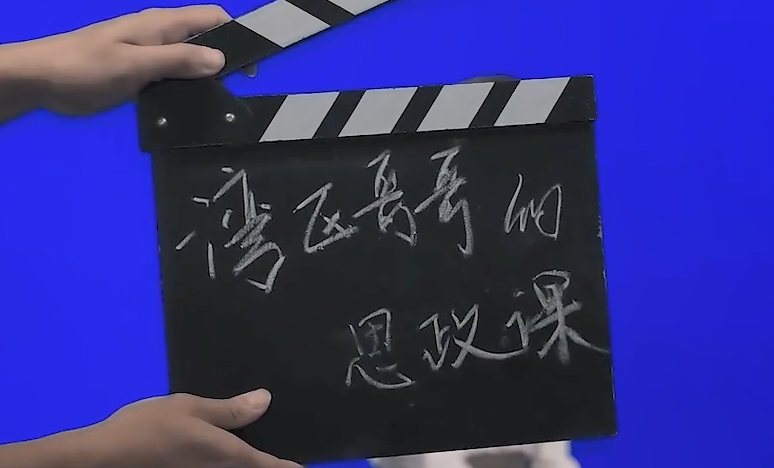 湾区哥哥的
思政课